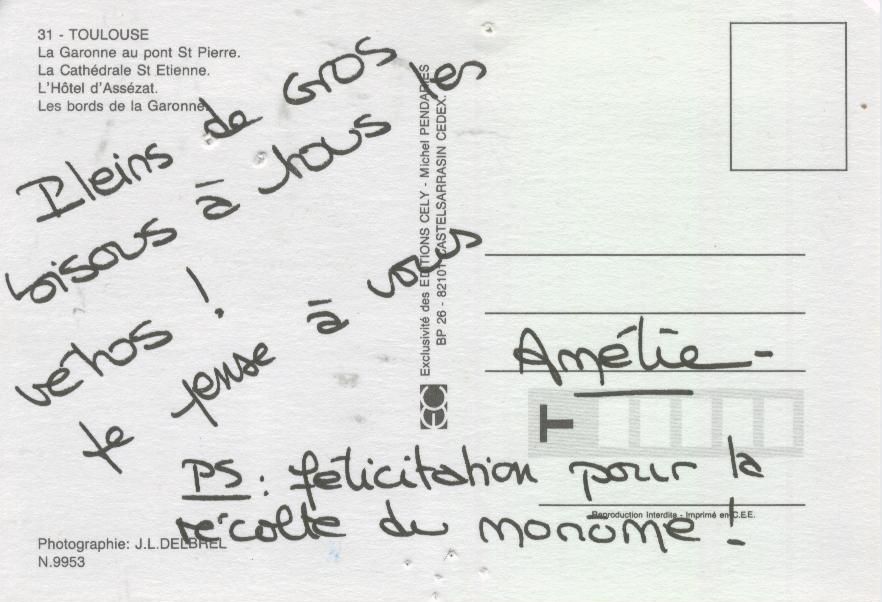 31 - TOULOUSE
La Garonne au pont St Pierre.
La Cathédrale St Etienne.
L'Hôtel d'Assézat.
Les bords de la Garonne.
Pleins de GROS
bisous à tous les
vétos !
Je pense à vous
Amélie-
PS : félicitation pour la
récolte du monome !
Exclusivité des EDITIONS CELY - Michel PENDARIES
BP 26 - 82101 CASTELSARRASIN CEDEX.
T
Reproduction Interdite - Imprimé en C.E.E.
Photographie: J.L.DELBREL
N.9953